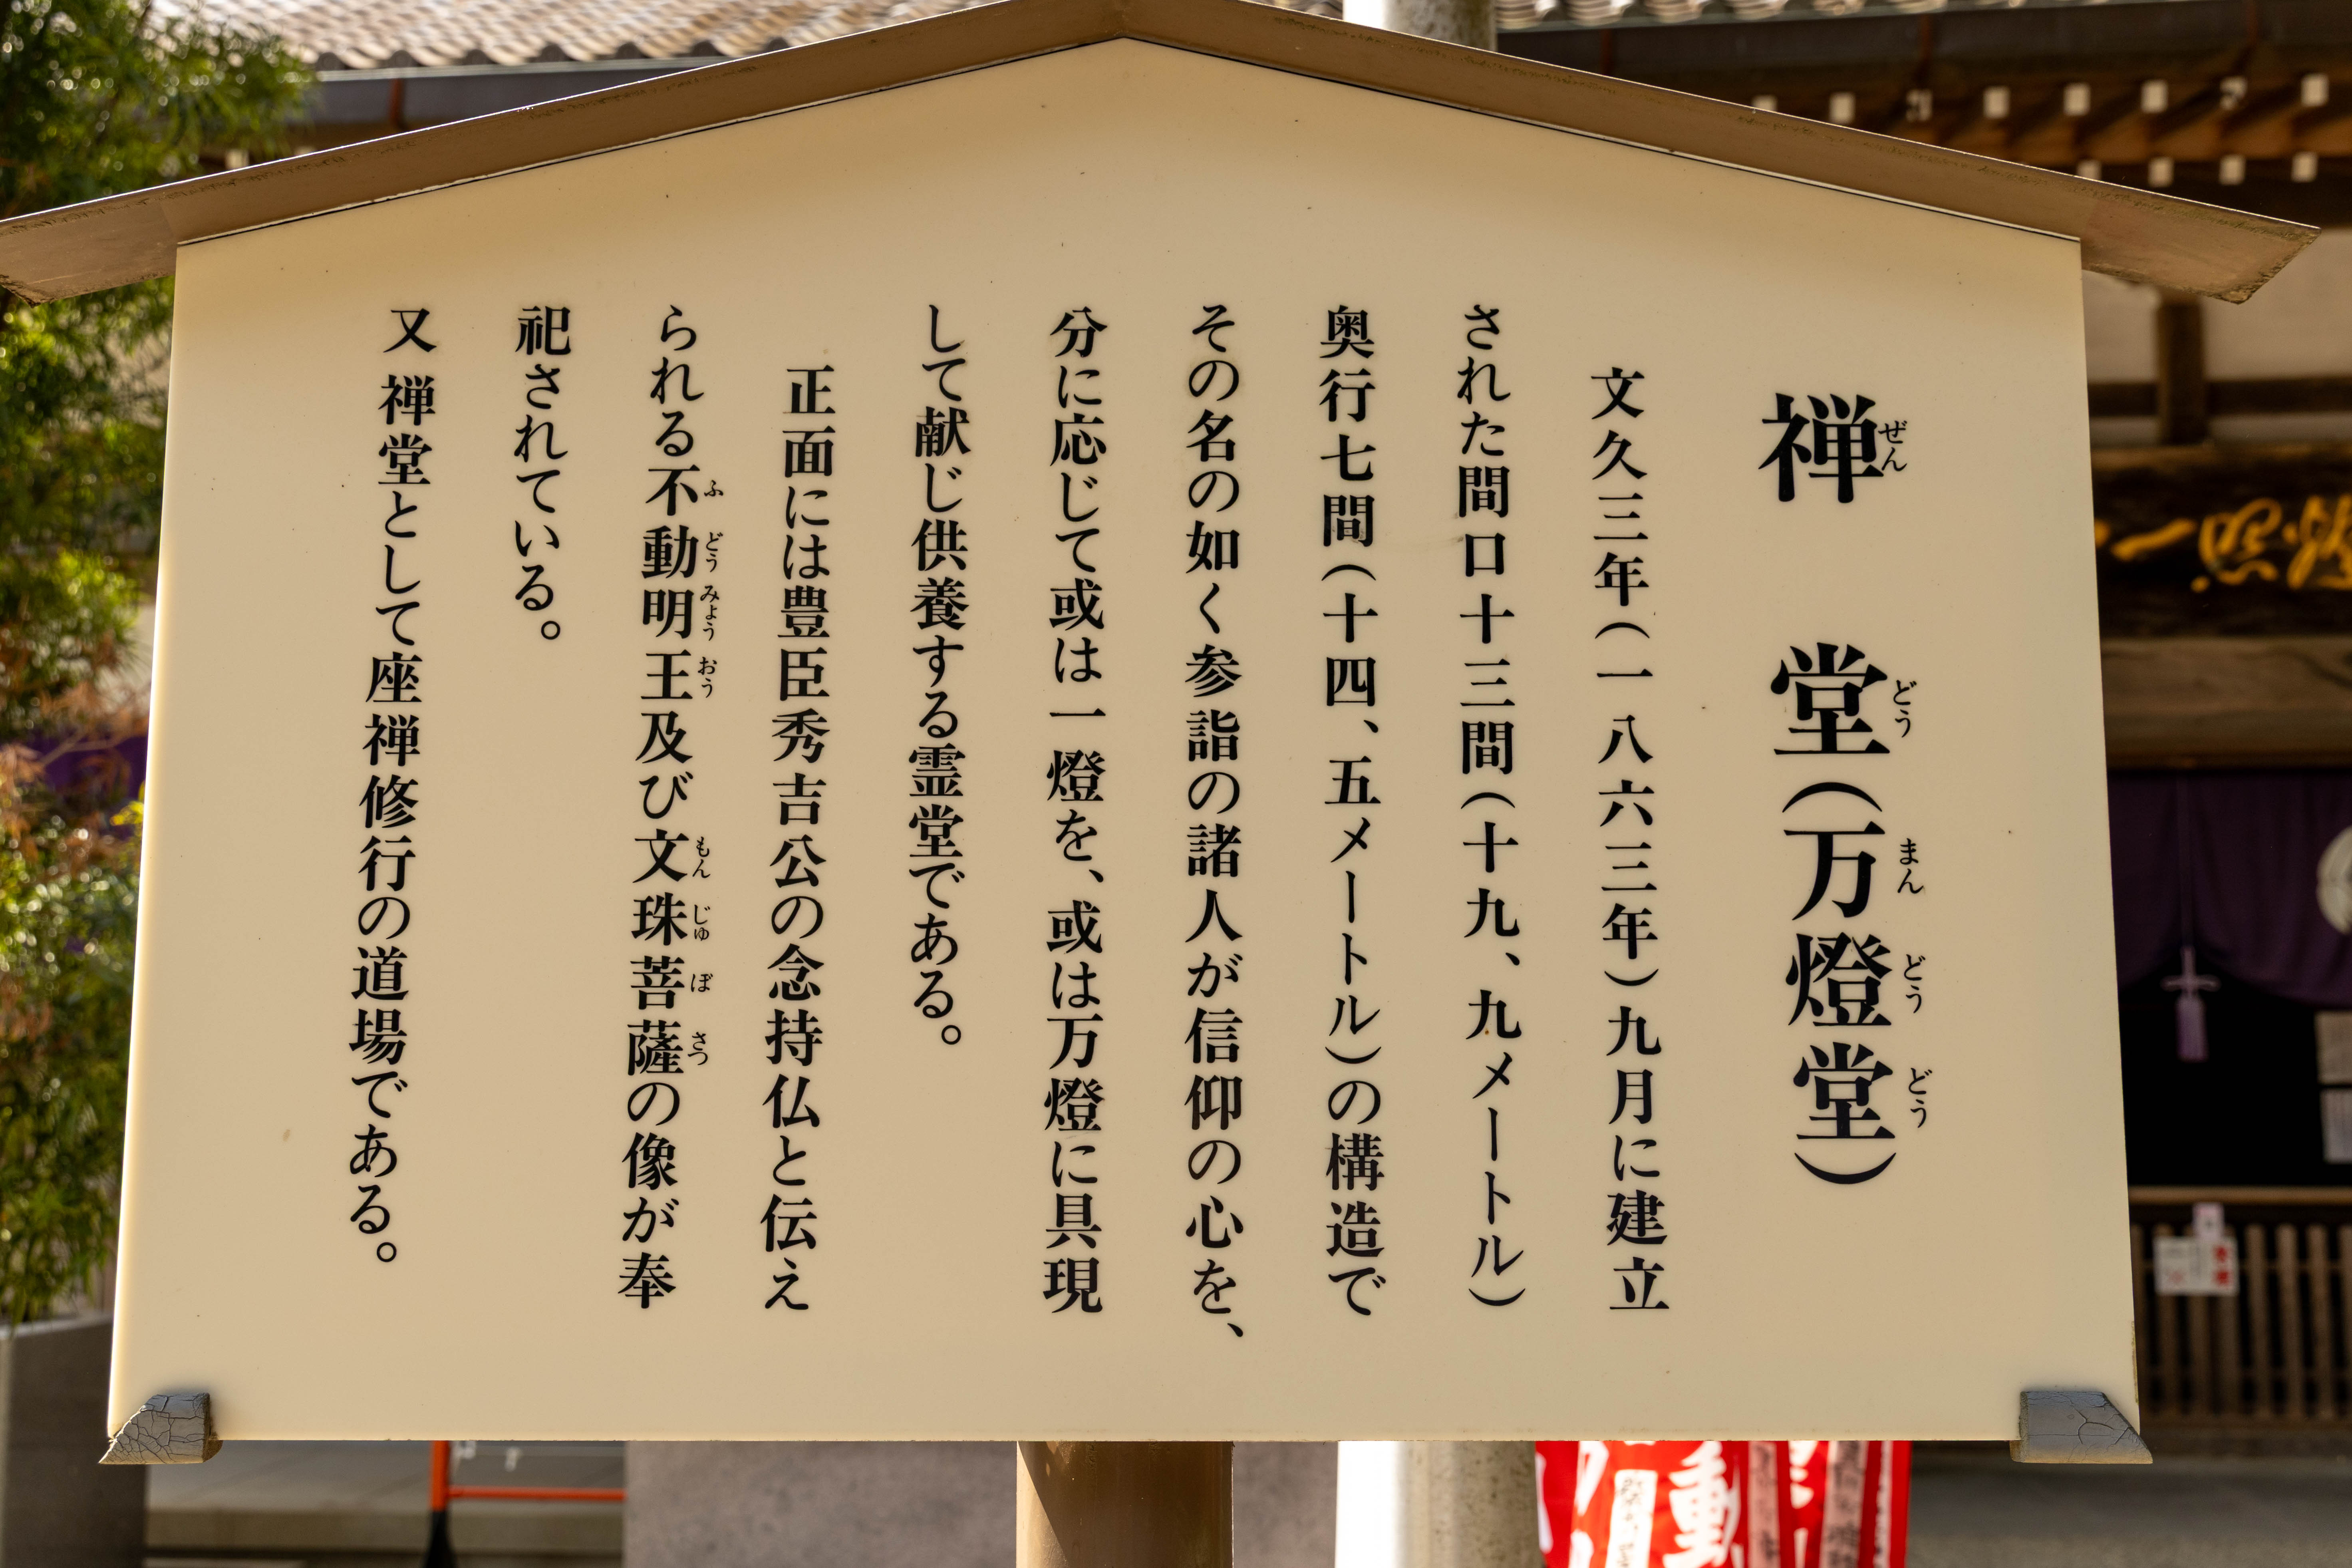 禅堂(万燈堂)
ぜんどうまんどうどう
文久三年(一八六三年)九月に建立
された間口十三間(十九、九メートル)
奥行七間(十四、五メートル)の構造で
その名の如く参詣の諸人が信仰の心を、
分に応じて或は一燈を、或は万燈に具現
して献じ供養する霊堂である。
正面には豊臣秀吉公の念持仏と伝え
られる不動明王及び文珠菩薩の像が奉
ふどうみょうおうもんじゅぼさつ
祀されている。
又禅堂として座禅修行の道場である。
動